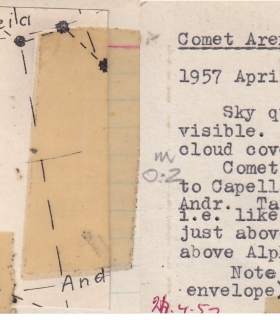 eila
And
Comet Aren
1957 Apri
Sky q
visible.
cloud cov
m
0.2
Comet
to Capell
Andr. Ta
i.e. like
just abov
above Alp
Note
envelope)